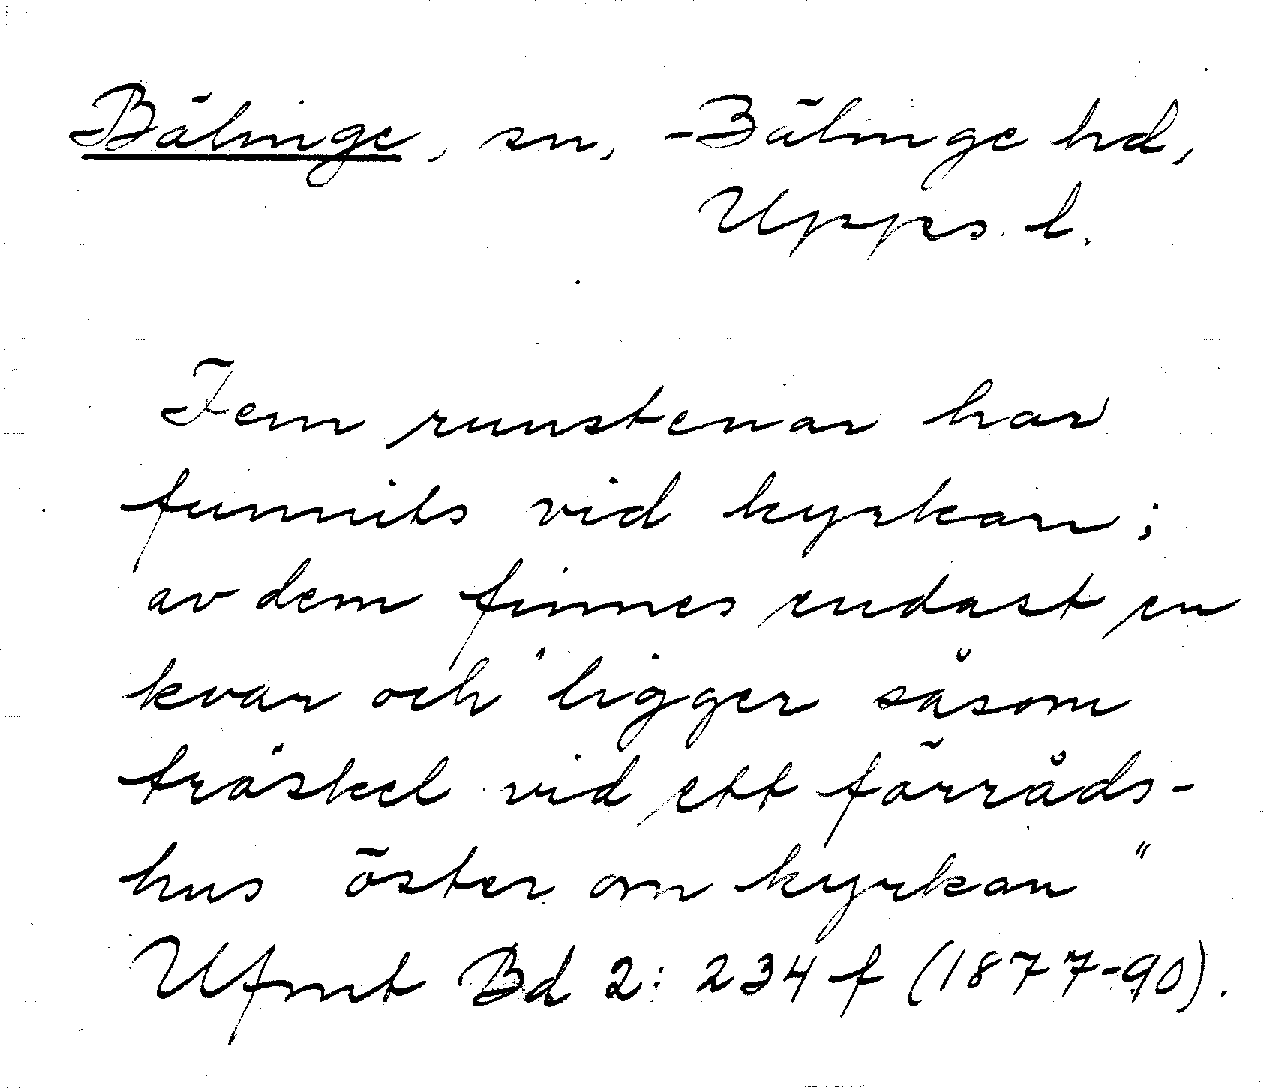 Bälinge, sn, Bälinge hd,
Upps. l.
Fem runstenar har
funnits vid kyrkan;
av dem finnes endast en
kvar och "ligger såsom
tröskel vid ett förråds-
hus öster om kyrkan"
Ufmt Bd 2: 234 f (1877-90).